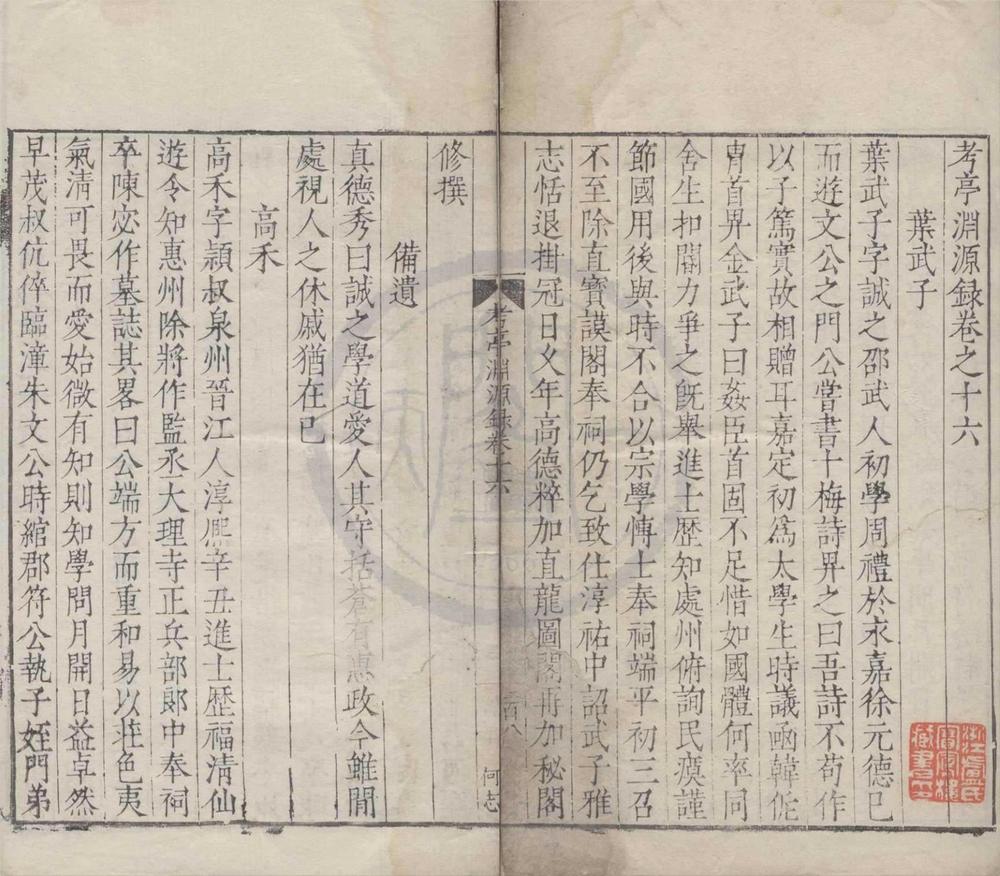 考亭淵源録卷之十六
葉武子
葉武子字誠之邵武人初學周禮於永嘉徐元德已
而遊文公之門公嘗書十梅詩畀之曰吾詩不苟作
以子篤實故相贈耳嘉定初爲太學生時議函韓侂
胄首畀金武子曰姦臣首固不足惜如國體何率同
舍生扣閽力爭之旣舉進士歷知處州俯詢民瘼謹
節國用後與時不合以宗學博士奉祠端平初三召
不至除直寳謨閣奉祠仍乞致仕淳祐中詔武子雅
志恬退掛冠日乆年高德粹加直龍圖閣再加秘閣
考亭淵源録卷十六
一百八
何志
修撰
備遺
真德秀曰誠之學道愛人其守括蒼有惠政今雖閒
處視人之休戚猶在己
高禾
高禾字頴叔泉州晉江人淳熈辛丑進士歷福清仙
遊令知惠州除將作監丞大理寺正兵部郎中奉祠
卒陳宓作墓誌其畧曰公端方而重和易以莊色夷
氣清可畏而愛始微有知則知學問月開日益卓然
早茂叔伉倅臨漳朱文公時綰郡符公執子姪門弟
浙江盧氏
藏書